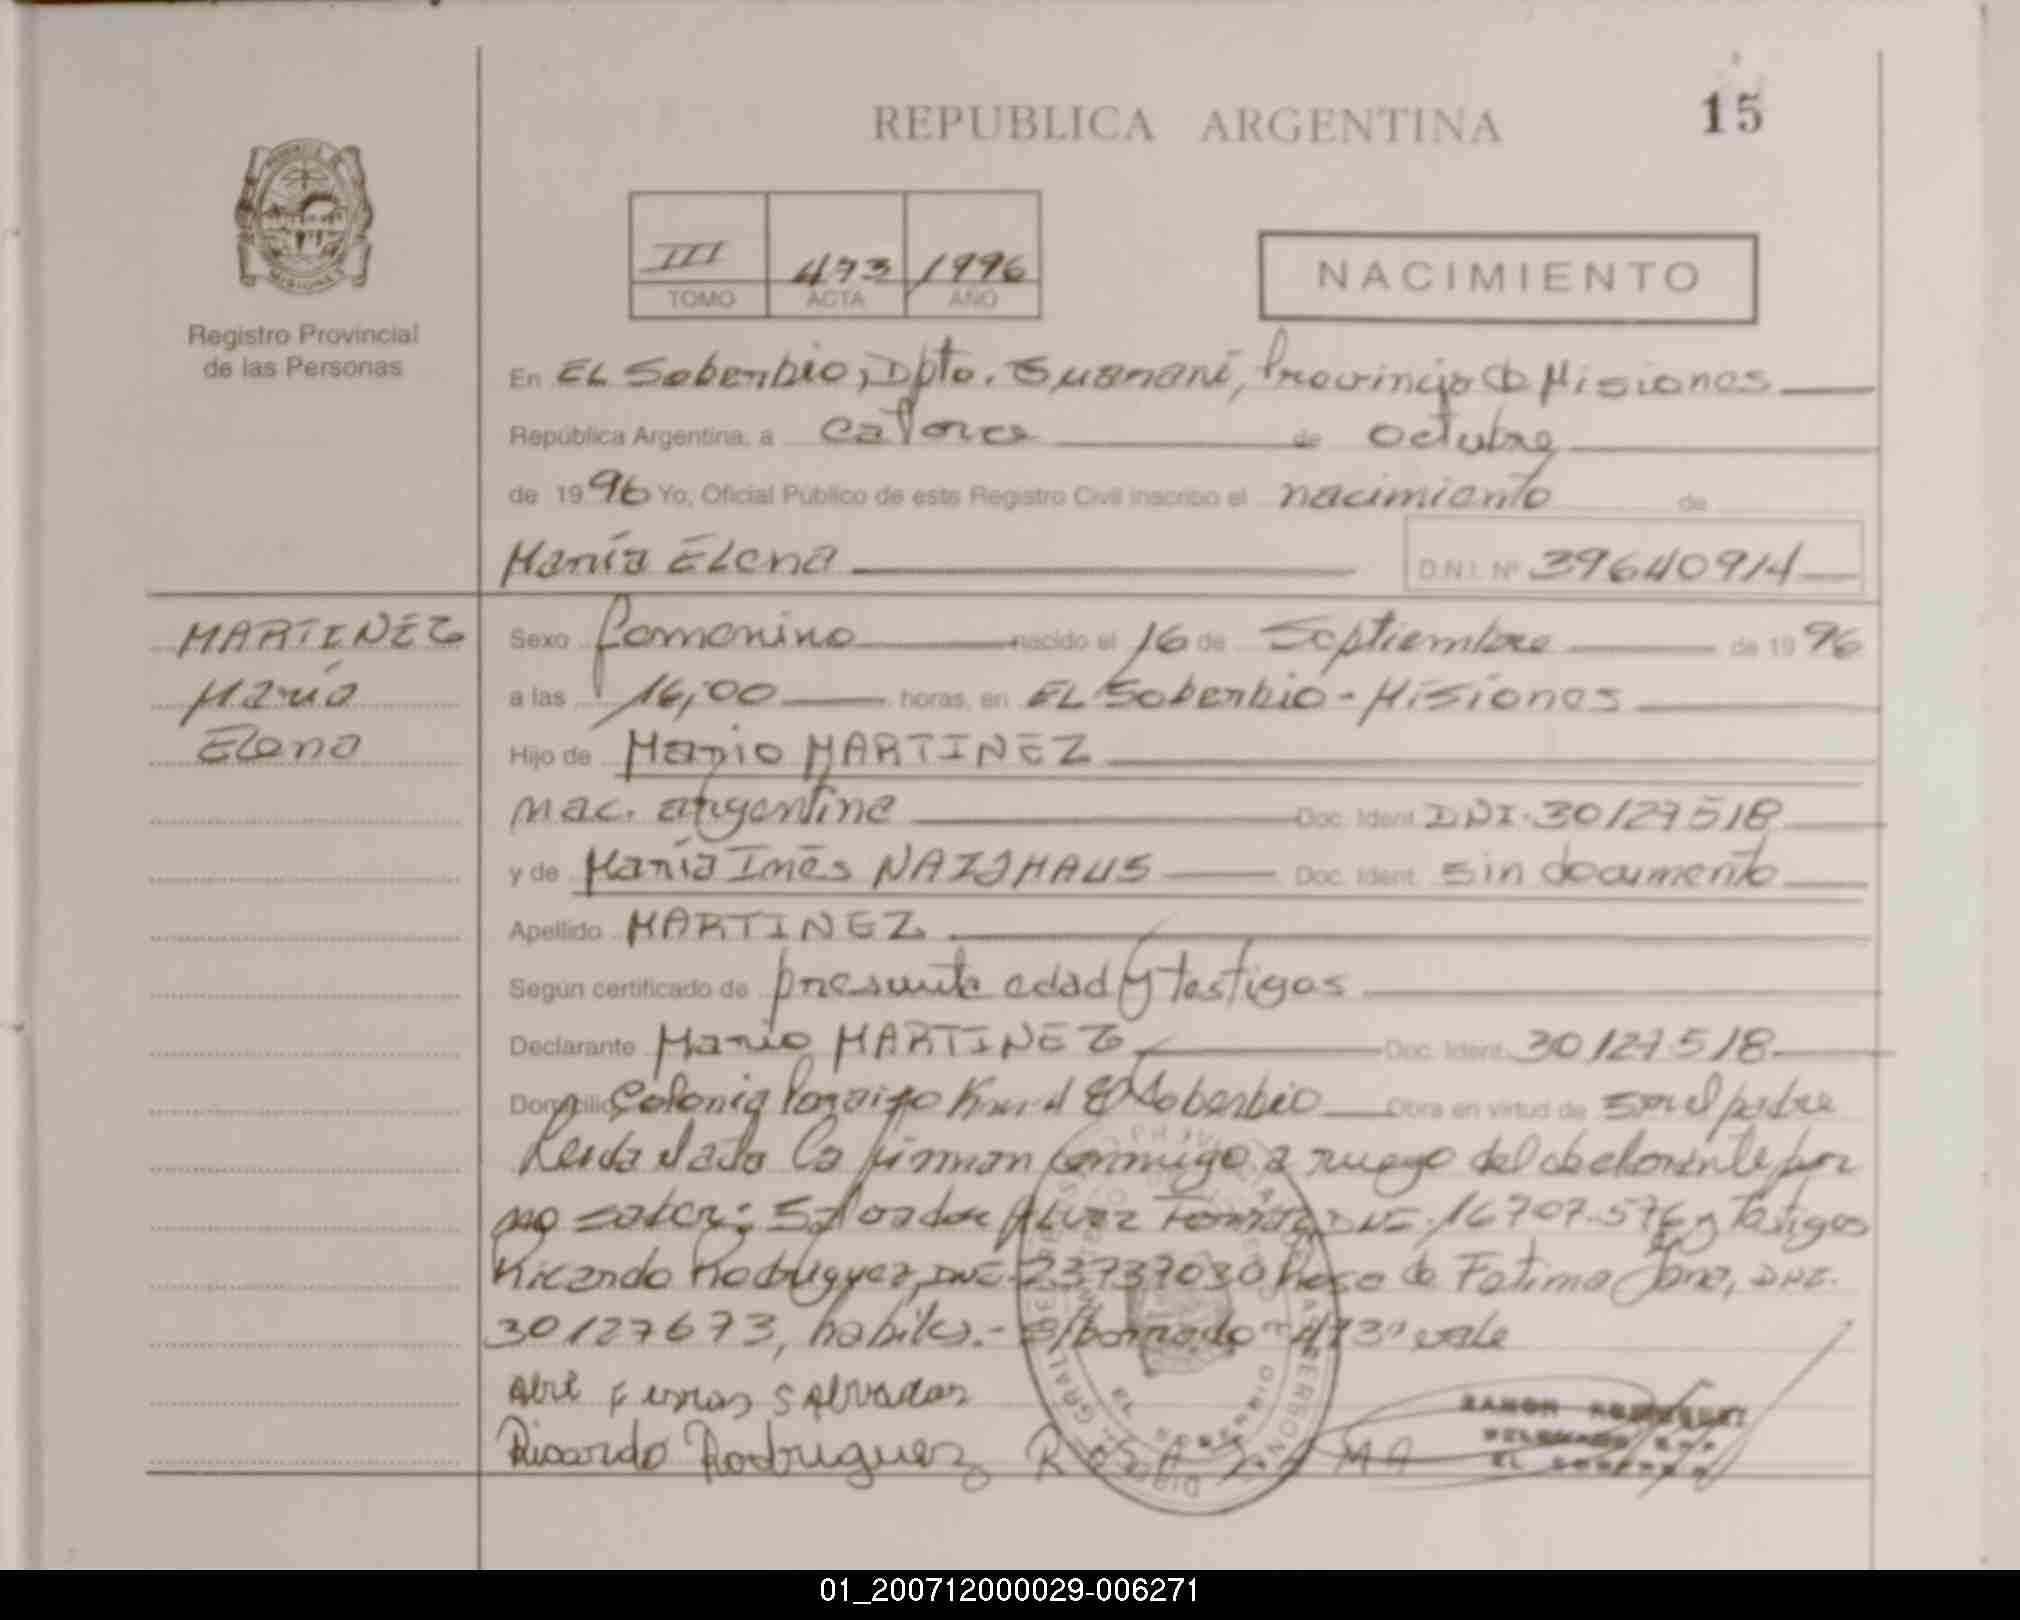 REPUBLICA ARGENTINA
15
III 473 1996
TOMO ACTA AÑO
NACIMIENTO
Registro Provincial
de las Personas
En EL Soberbio, Dpto. Guaraní, Provincia de Misiones
República Argentina, a catorce de octubre
de 1996 Yo, Oficial Público de este Registro Civil inscribo el nacimiento de
María Elena D.N.I. Nº 39640914
MARTINEZ
María
Elena
Sexo femenino nacido el 16 de Septiembre de 1996
a las 16,00 horas, en EL Soberbio - Misiones
Hijo de Mario MARTINEZ
nac. argentina Doc. Ident. DNI. 30127518
y de María Inés Doc. Ident. sin documento
Apellido MARTINEZ
Según certificado de presunta edad y testigos
Declarante Mario MARTINEZ Doc. Ident. 30127518
Domicilio Colonia El Soberbio Obra en virtud de ser el padre
Leida el acta la firman conmigo a ruego del declarante por
no saber: Salvador DNI. 16707.576 y Testigos
Ricardo Rodriguez, DNI. 23737030 Rosa de Fatima DNI.
30127673, habiles.- s/borrado "473" vale
Salvador
Ricardo Rodriguez ROSA
RAMON
DELEGADO
EL SOBERBIO
01_200712000029-006271